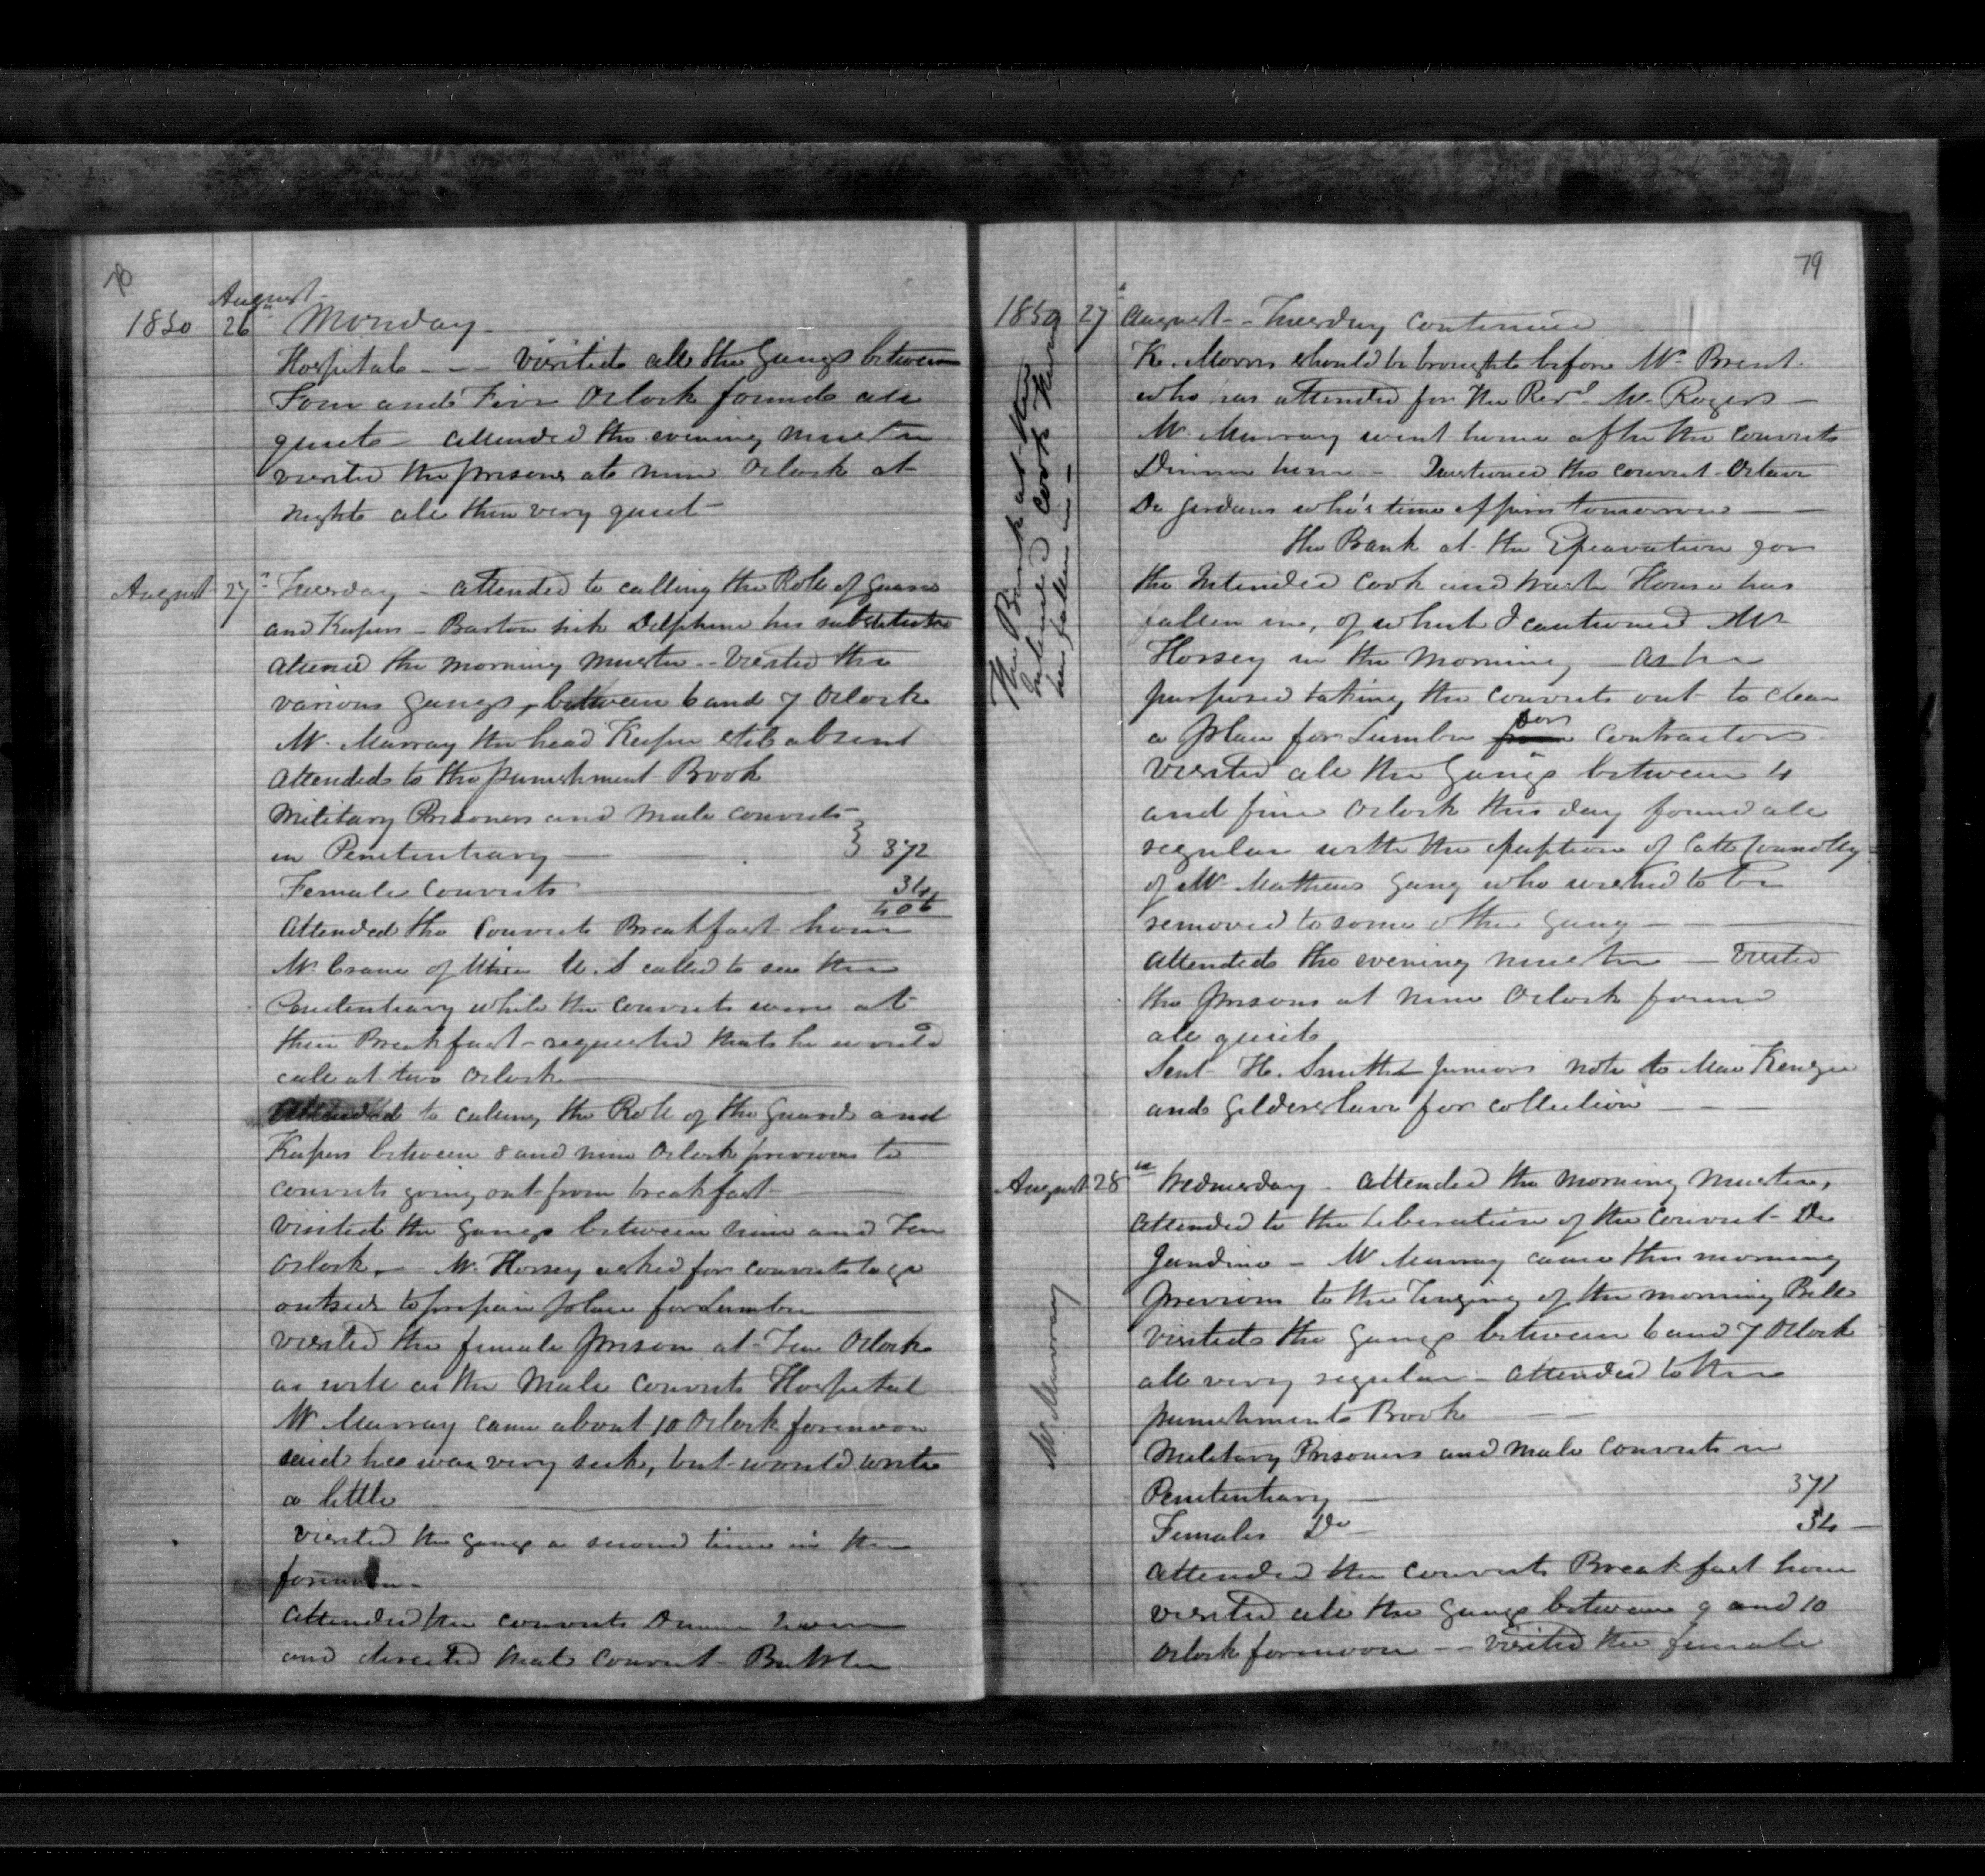 78
August
1850 26 Monday
Hospital - - - visited all the Gangs between
Four and Five Oclock found all
quiet - attended the evening muster
visited the prisons at nine Oclock at
night all then very quiet -
August 27 Tuesday - attended to calling the Role of Guard
and Keepers - Barton sick Delphine his substitute
attend the morning muster - - visited the
various Gangs, between 6 and 7 Oclock
Mr. Murray the head Keeper still absent
attended to the punishment Book
Military Prisoners and male convicts
in Penitentiary 372
Female convicts 34
406
attended the Convicts Breakfast hour
Mr. Crane of Utica U.S called to see the
Penitentiary while the convicts were at
their Breakfast - requested that he would
call at two Oclock
attended to calling the Role of the guard and
Keepers between 8 and nine Oclock previous to
convicts going out from breakfast -
visited the gangs between nine and Ten
Oclock - Mr. Horsey asked for convicts to go
outside to prepair place for Lumber
visited the female prison at Ten Oclock
as well as the Male Convicts Hospital
Mr Murray came about 10 Oclock forenoon
said he was very sick, but would write
a little
visited the gangs a second time in the
forenoon -
attended the convicts Dinner hour
and directed that Convict
79
1850 27 August - - Tuesday continued
K. Morris should be brought before Mr. Brent
who has attended for the Revd. Mr. Rogers -
Mr. Murray went home after the convicts
Dinner hour - Questioned the convict Octave
De Jardins who's time expires tomorrow
The Bank at the
Intended Cook House
has fallen in -
the Bank at the Excavation for
the Intended Cook and Wash House has
fallen in, of which I cautioned Mr
Horsey in the Morning - as he
purposed taking the convicts out to clear
a place for Lumber for Contractors
Visited all the Gangs between 4
and five Oclock this day found all
regular with the exception of Catt Connolley
of Mr. Mathews gang who wished to be
removed to some other gang -
attended the evening muster - visited
the prisons at nine Oclock found
all quiet
Sent H. Smith Juniors note to MacKenzie
and Gildersleave for collection
August 28 Wednesday - attended the morning muster,
attended to the Liberation of the Convict De
Jardine - Mr Murray came this morning
previous to the ringing of the morning Bell
visited the gangs between 6 and 7 Oclock
Mr. Murray
all very regular - attended to the
punishment Book
Military Prisoners and male convicts in
Penitentiary 371
Females Do 34
attended the convicts Breakfast hour
visited all the gangs between 9 and 10
Oclock forenoon - - visited the female